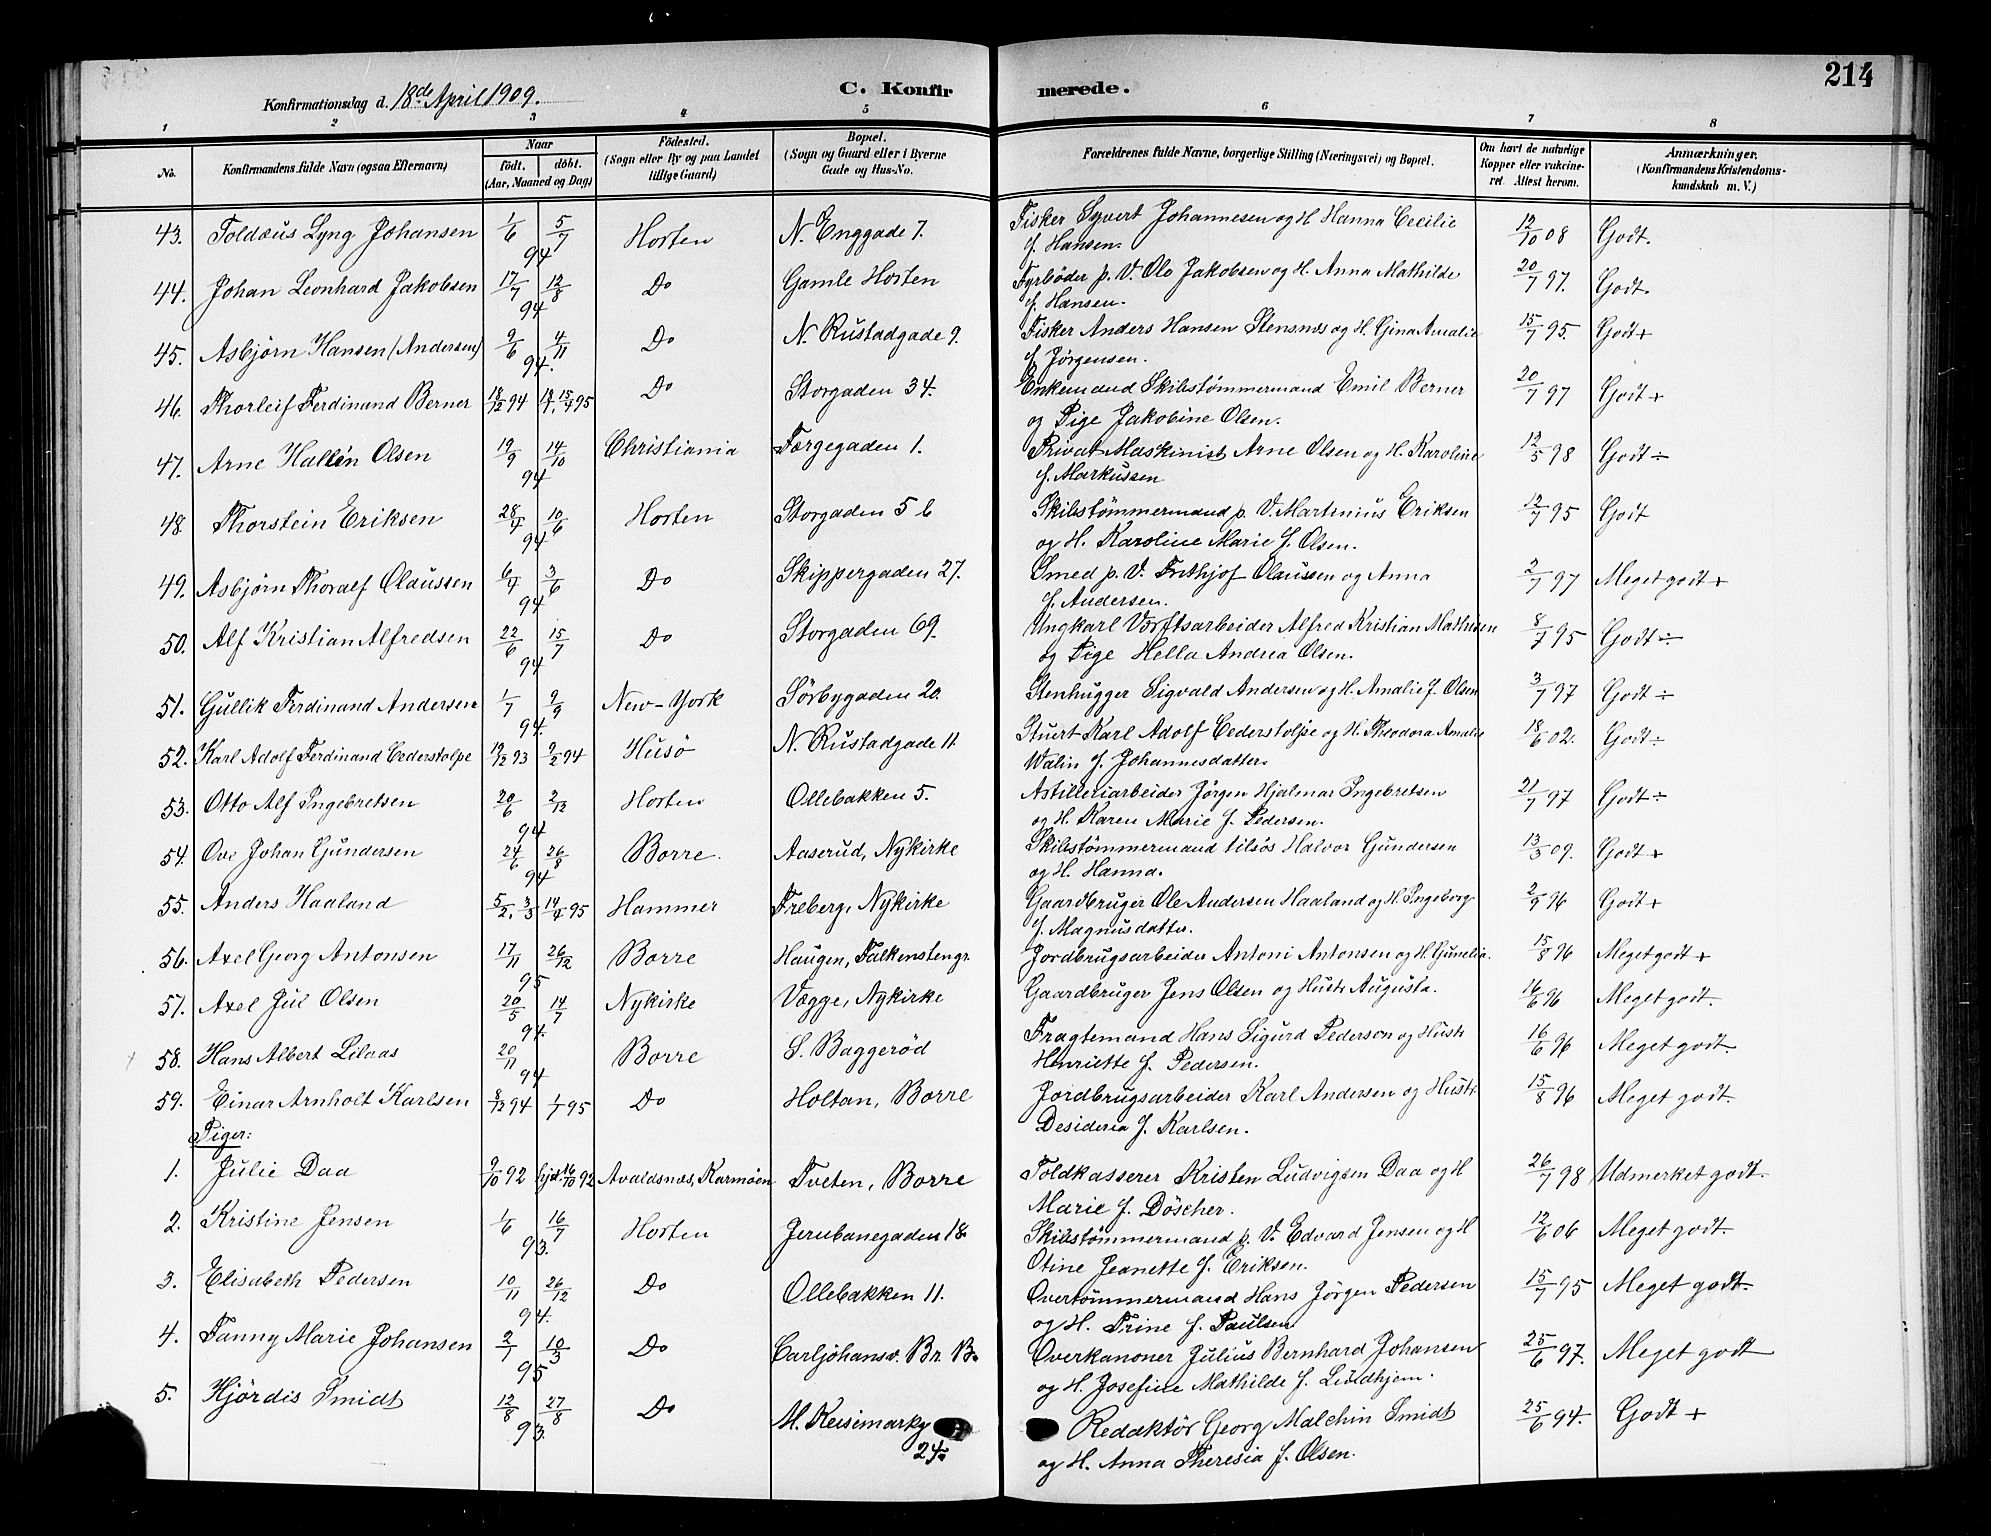 214
Konfirmationsdag d. 18de April 1909. C. Konfirmerede.
1 2 3 4 5 6 7 8
No. Konfirmandens fulde Navn (ogsaa Efternavn) Naar födt. döbt. (Aar, Maaned og Dag) Födested. (Sogn eller By og paa Landet tillige Gaard) Bopæl. (Sogn og Gaard eller i Byerne Gade og Hus-No. Forældrenes fulde Navne, borgerlige Stilling (Næringsvei) og Bopæl. Om havt de naturlige Kopper eller vakcineret. Attest herom. Anmærkninger. (Konfirmandens Kristendomskundskab m. V.)
43. Toldæus Lyng Johansen 1/6 5/7 94 Horten N. Enggade 7. Fisker Syvert Johannesen og H. Hanna Cecilie f. Hansen. 12/10 08 Godt.
44. Johan Leonhard Jakobsen 17/7 12/8 94 Do Gamle Horten Fyrböder p. V. Ole Jakobsen og H. Anna Mathilde f. Hansen. 20/7 97. Godt.
45. Asbjörn Hansen (Andersen) 9/6 4/11 94. Do N. Rustadgade 9. Fisker Anders Hansen Stensnæs og H. Gina Amalie f. Jörgensen. 15/7 95. Godt +
46. Thorleif Ferdinand Berner 18/12 94 15/4 95 Do Storgaden 34. Enkemand Skibstömmermand Emil Berner og Pige Jakobine Olsen. 20/7 97 Godt +
47. Arne Hallén Olsen 19/9 14/10 94 Christiania Færgegaden 1. Privat Maskinist Arne Olsen og H. Karoline f. Markussen. 12/5 98 Godt ÷
48 Thorstein Eriksen 28/4 10/6 94 Horten Storgaden 5 b Skibstömmermand p. V. Martinius Eriksen og H. Karoline Marie f. Olsen. 12/7 95 Godt
49. Asbjörn Thoralf Olaussen 6/4 3/6 94 Do Skippergaden 27. Smed p. V. Frithjof Olaussen og Anna f. Andersen. 2/7 97 Meget godt +
50. Alf Kristian Alfredsen 22/6 15/7 94 Do Storgaden 69. Ungkarl Værftsarbeider Alfred Kristian Mathisen og Pige Hella Andrea Olsen. 8/7 95 Godt ÷
51. Gullik Ferdinand Andersen 1/7 9/9 94. New-York Sörbygaden 20 Stenhugger Sigvald Andersen og H. Amalie f. Olsen 3/7 97 Godt ÷
52. Karl Adolf Ferdinand Cederstolpe 19/12 93 9/2 94 Husö N. Rustadgade 11. Stuert Karl Adolf Cederstolpe og H. Theodora Amalie Walin f. Johannesdatter. 18/6 02. Godt ÷
53. Otto Alf Ingebretsen 20/6 2/12 94 Horten Ollebakken 5. Artilleriarbeider Jörgen Hjalmar Ingebretsen og H. Karen Marie f. Pedersen. 21/7 97 Godt ÷
54. Ove Johan Gundersen 24/6 26/8 94 Borre. Aaserud, Nykirke Skibstömmermand tilsös Halvor Gundersen og H. Hanna. 13/3 09. Godt +
55. Anders Haaland 5/2. 14/4 95 Hammer Freberg, Nykirke Gaardbruger Ole Andersen Haaland og H. Ingeborg f. Magnusdatter. 2/9 96 Godt +
56. Axel Georg Antonsen 17/11 26/12 95 Borre Haugen, Falkenstengr. Jordbrugsarbeider Antoni Antonsen og H. Gunelia. 15/8 96 Meget godt +
57. Axel Jul Olsen 20/5 14/7 94. Nykirke Vægge, Nykirke Gaardbruger Jens Olsen og Hustr Augusta. 16/6 96 Meget godt.
58. Hans Albert Lilaas 20/11 94 Borre S. Baggeröd Fragtemand Hans Sigurd Pederson og Hustr Henriette f. Pedersen. 16/6 96 Meget godt.
59. Einar Arnholt Karlsen 8/12 94 1/7 95 Do Holtan, Borre Jordbrugsarbeider Karl Andersen og Hustr Desideria f. Karlsen. 15/8 96 Meget godt.
Piger:
1. Julie Daa 9/10 92 hjd. 16/10 92 Avaldsnæs, Karmöen Tveten, Borre Toldkasserer Kristen Ludvigsen Daa og H Marie f. Döscher. 26/7 98 Udmerket godt.
2. Kristine Jensen 1/6 16/7 93. Horten Jernbanegaden 18. Skibstömmermand p. V. Edvard Jensen og H Otine Jeanette f. Eriksen. 12/6 06 Meget godt.
3. Elisabeth Pedersen 10/11 26/12 94. Do Ollebakken 11. Overtömmermand Hans Jörgen Pedersen og H. Trine f. Paulsen 15/7 95 Meget godt.
4. Fanny Marie Johansen 2/7 10/3 95 Do Carljohansv. Br. B. Overkanoner Julius Bernhard Johansen og H. Josefine Mathilde f. Lundhjem. 25/6 97. Meget godt
5. Hjördis Smidt 12/8 27/8 93. Do M. Keisemarkg 24. Redaktör Georg Malchin Smidt og H. Anna Theresia f. Olsen. 25/6 94. Godt +